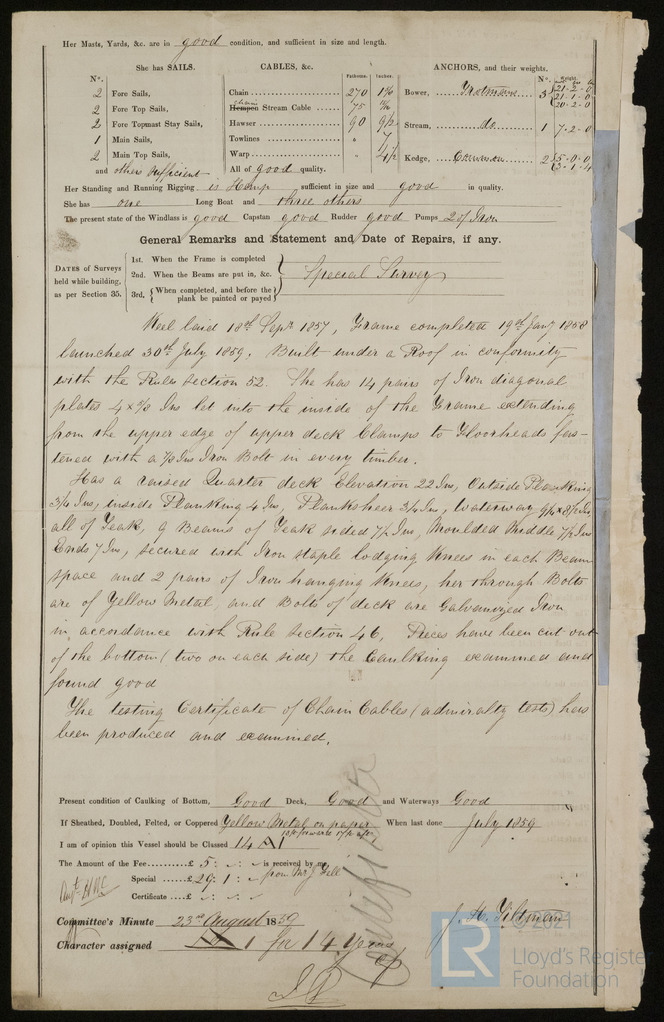 Her Masts, Yards, &c. are in good condition, and sufficient in size and length.
She has SAILS.
N°.
2 Fore Sails,
2 Fore Top Sails,
2 Fore Topmast Stay Sails,
1 Main Sails,
2 Main Top Sails,
and others sufficient
CABLES, &c. Fathoms. Inches.
Chain 270 1 9/16
Hempen chain Stream Cable 75
Hawser 90 9 1/2
Towlines " 7
Warp " 4 1/2
All of good quality.
ANCHORS, and their weights. N°. Weight.
Bower, Trotmans 3 21 - 2 - 0
21 - 1 - 0
20 - 2 - 0
Stream, do. 1 7 - 2 - 0
Kedge, Common 2 5 - 0 - 0
3 - 1 - 4
Her Standing and Running Rigging is Hemp sufficient in size and good in quality.
She has one Long Boat and three others
The present state of the Windlass is good Capstan good Rudder good Pumps 2 of Iron
General Remarks and Statement and Date of Repairs, if any.
DATES of Surveys held while building, as per Section 35.
1st. When the Frame is completed
2nd. When the Beams are put in, &c.
3rd, When completed, and before the plank be painted or payed
Special Survey
Keel laid 18th Sepr. 1857, Frame completed 19th Jany 1858
launched 30th July 1859. Built under a Roof in conformity
with the Rules section 52. She has 14 pairs of Iron diagonal
plates 4 x 5/8 Ins let into the inside of the Frame extending
from the upper edge of upper deck Clamps to Floorheads fas-
tened with a 7/8 Ins Iron Bolt in every timber.
Has a raised Quarter deck Elevation 22 Ins, Outside Planking
3 1/4 Ins, inside Planking 4 Ins, Planksheer 3 1/4 Ins, Waterway 9 1/2 x 8 1/2 Ins
all of Teak, 9 Beams of Teak sided 7 1/2 Ins, Moulded Middle 7 1/2 Ins
Ends 7 Ins, secured with Iron staple lodging Knees in each Beam
space and 2 pairs of Iron hanging Knees, her through Bolts
are of Yellow Metal, and Bolts of deck are Galvanized Iron
in accordance with Rule section 46. Pieces have been cut out
of the bottom (two on each side) the Caulking examined and
found good
The testing Certificate of Chain Cables (admiralty tests) has
been produced and examined.
Present condition of Caulking of Bottom, Good Deck, Good and Waterways Good
If Sheathed, Doubled, Felted, or Coppered Yellow Metal on paper When last done July 1859
I am of opinion this Vessel should be Classed 14 A 1
The Amount of the Fee £ 5 : - : - is received by me,
Special £ 29 : 1 : - from Mr J Gill
Certificate £ - : - : -
Certificate
Committee's Minute 23rd August 1859
Character assigned A 1 for 14 Years
© 2021
LR
Lloyd's Register
Foundation